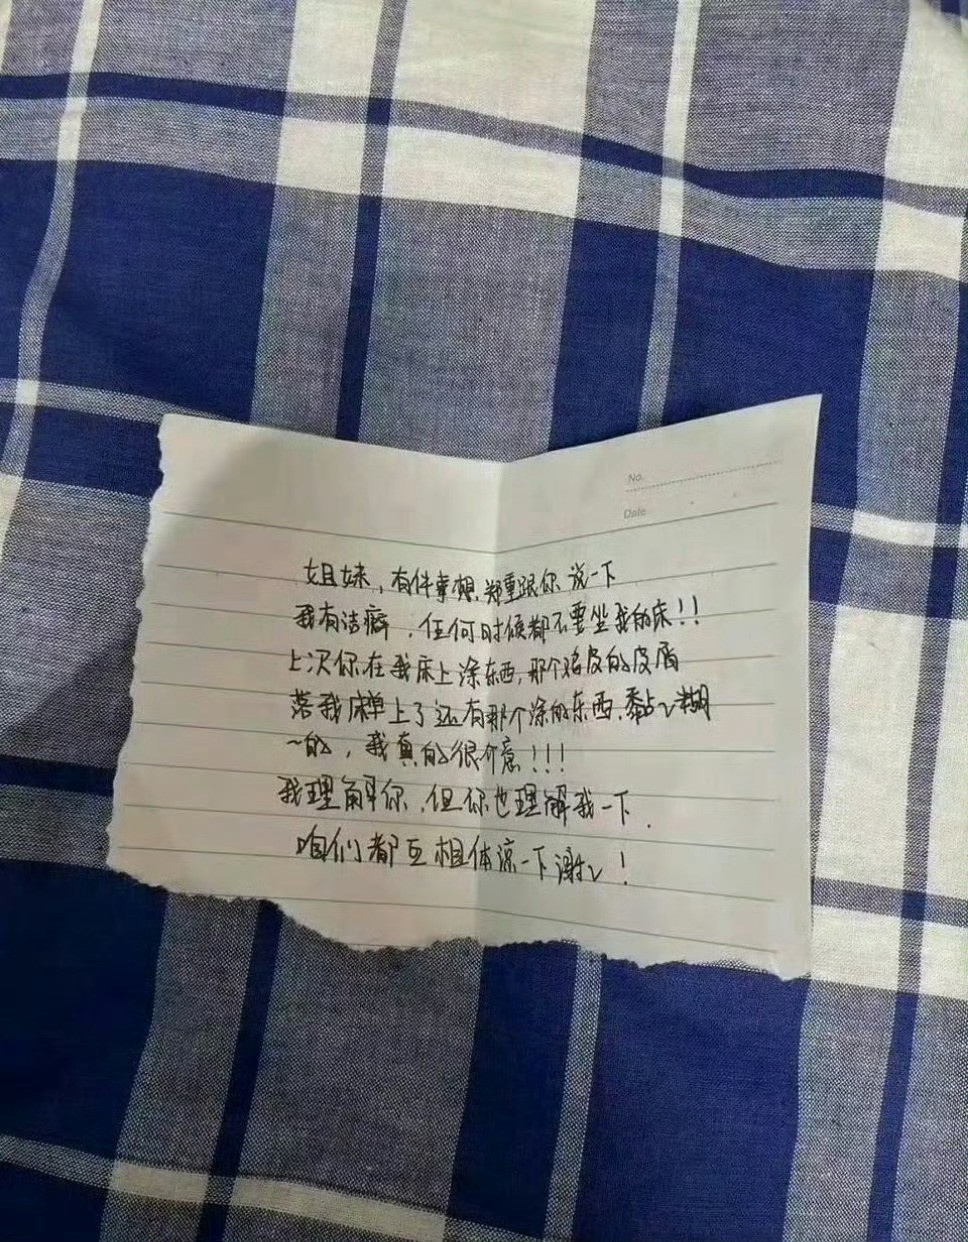 No.
Date
姐妹，有件事想郑重跟你说一下
我有洁癖，任何时候都不要坐我的床！！
上次你在我床上涂东西，那个鸡皮的皮屑
落我床单上了还有那个涂的东西，黏~糊
~的，我真的很介意！！！
我理解你，但你也理解我一下.
咱们都互相体谅一下谢~！